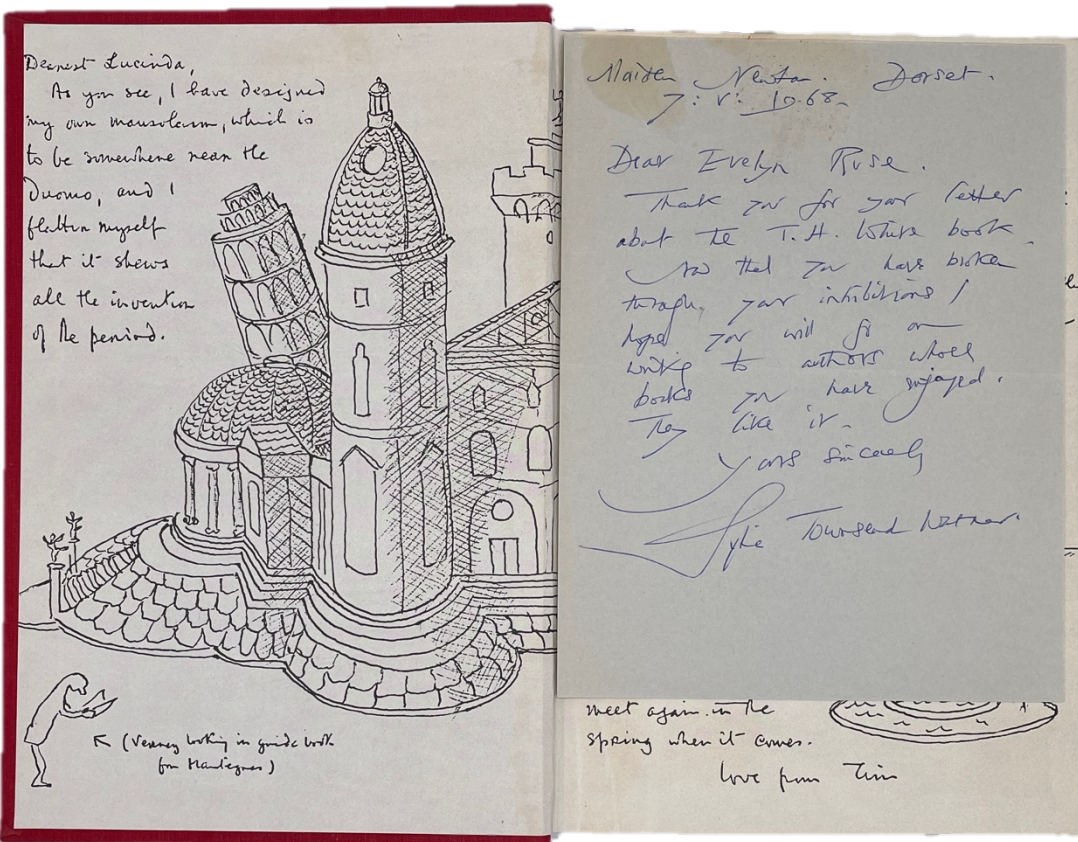 Dearest Lucinda,
As you see, I have designed
my own mausoleum, which is
to be somewhere near the
Duomo, and I
flatter myself
that it shews
all the invention
of the period.
(Verney looking in guide book
for Mantegnas)
Maiden Newton. Dorset.
7: V: 1968.
Dear Evelyn Ruse.
Thank you for your letter
about the T.H. White book.
Now that you have broken
through your inhibitions I
hope you will go on
writing to authors whose
books you have enjoyed.
They like it.
Yours sincerely
Sylvia Townsend Warner.
meet again in the
spring when it comes.
love from Tim